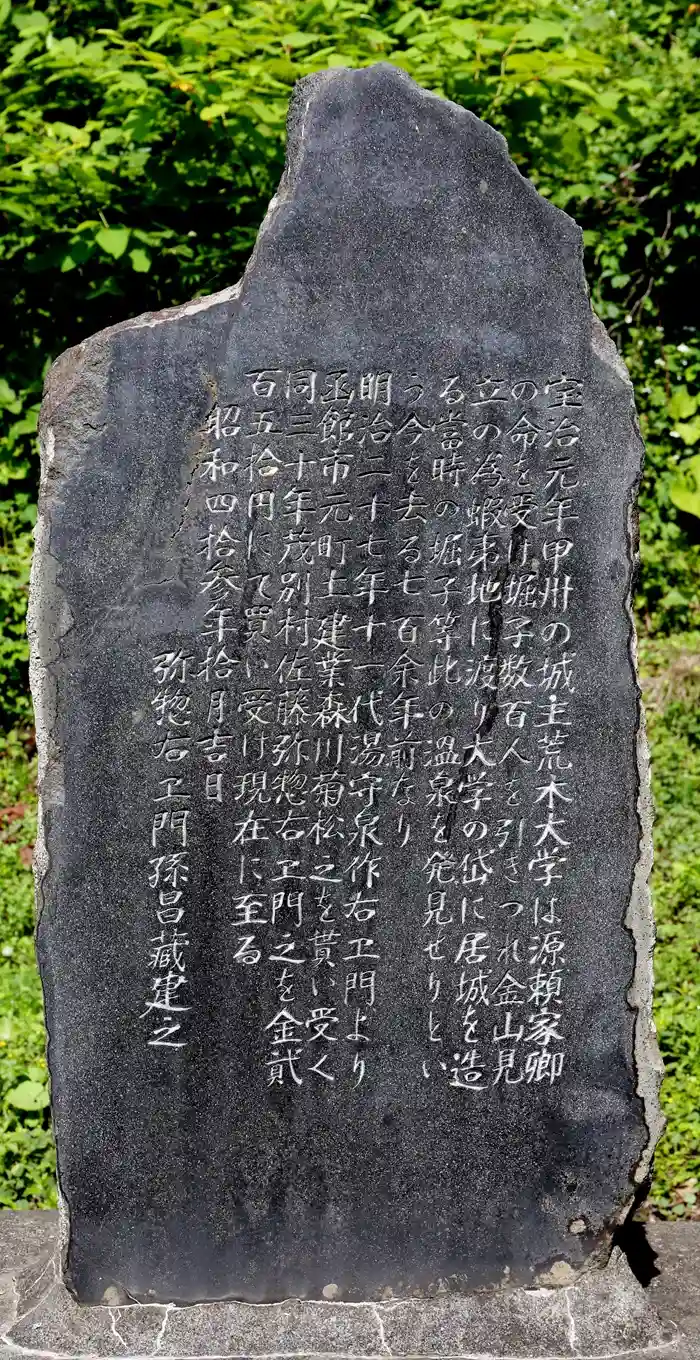 宝治元年甲卅の城主荒木大学は源頼家卿
の命を受け堀子数百人を引きつれ金山見
立の為蝦夷地に渡り大学の岱に居城を造
る當時の堀子等此の温泉を発見せりとい
う今を去る七百余年前なり
明治二十七年十一代湯守泉作右ヱ門より
函館市元町土建業森川菊松之を貰い受く
同三十年茂別村佐藤弥惣右ヱ門之を金貮
百五拾円にて買い受け現在に至る
昭和四拾参年拾月吉日
弥惣右ヱ門孫昌藏建之